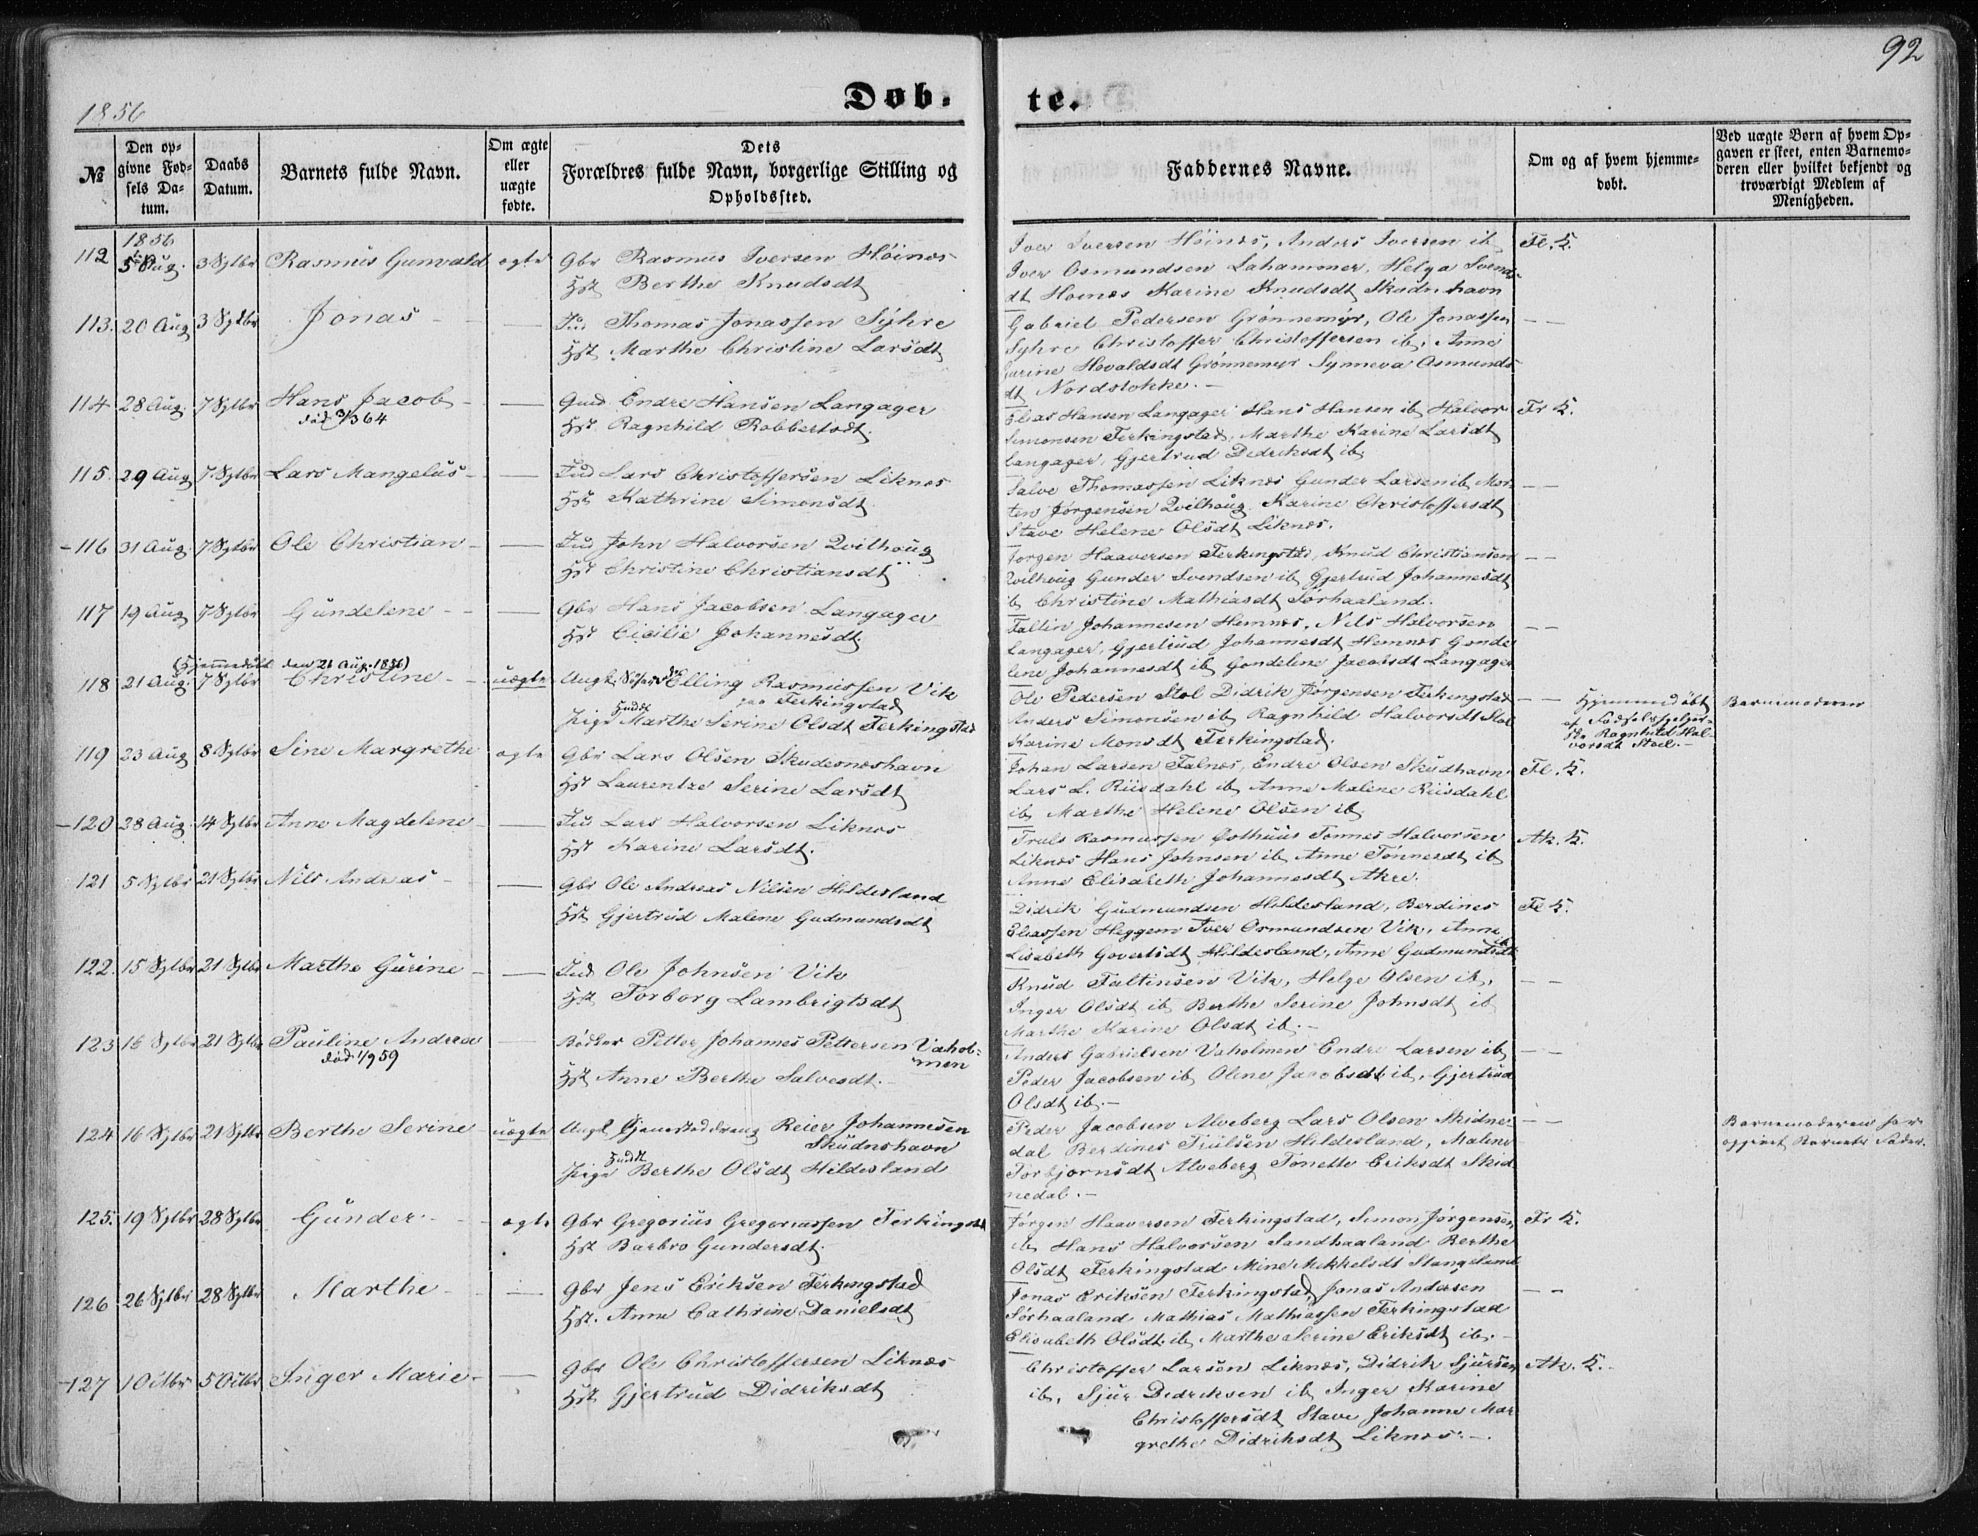 92
1856
Døb-
te.
№
Den op-
givne Fød-
sels Da-
tum.
Daabs
Datum.
Barnets fulde Navn.
Om ægte
eller
uægte
fødte.
Dets
Forældres fulde Navn, borgerlige Stilling og
Opholdssted.
Faddernes Navne.
Om og af hvem hjemme-
døbt.
Ved uægte Børn af hvem Op-
gaven er skeet, enten Barnemo-
deren eller hvilket bekjendt og
troværdigt Medlem af
Menigheden.
1856
112 5 Aug. 3 Sptbr Rasmus Gunvald ægte Gbr Rasmus Iversen Høines
Hst Berthe Knudsdt
Iver Iversen Høines, Anders Iversen ib Fl. K.
Iver Osmundsen Lahammer, Helga Svends-
dt Høines Karine Knudsdt Skudn.havn
113. 20 Aug 3 Sptbr Jonas — Thomas Jonassen Syhre
Hst Marthe Christine Larsdt
Gabriel Pedersen Grønnemyr, Ole Jonassen — —
Syhre Christoffer Christoffersen ib, Anne
Karine Hovaldsdt Grønnemyr Synneva Osmunds-
dt Nordstokke. —
114 28 Aug. 7 Sptbr Hans Jacob — Gmd. Endre Hansen Langager
død 3/3 64
Hst Ragnhild Robbertsdt.
Elias Hansen Langager Hans Hansen ib Halvor Fr K.
Simonsen Ferkingstad, Marthe Karine Larsdt
Langager, Gjertrud Didriksdt ib
115. 29 Aug 7 Sptbr Lars Mangelus — Lars Christoffersen Liknes
Hst Kathrine Simonsdt
Salve Thomassen Liknes Gunder Larsen ib Mor- — —
ten Jørgensen Qvilhoug. Karine Christoffersdt
Stave Helene Olsdt Liknes.
-116 31 Aug. 7 Sptbr Ole Christian — John Halvorsen Qvilhoug
Hst Christine Christiansdt
Jørgen Haaversen Ferkingstad, Knud Christiansen — —
Qvilhoug Gunder Svendsen ib Gjertrud Johannesdt
ib Christine Mathiasdt Sørhaaland.
117 19 Aug 7 Sptbr Gundelene — Gbr Hans Jacobsen Langager
Hst Cicilie Johannesdt.
Faltin Johannesen Hemnes, Nels Halvorsen — —
Langager, Gjertrud Johannesdt Hemnes Gunde-
lene Johannesdt ib Gondeline Jacobsdt Langager
(Hjemmedøbt den 21 Aug. 1856)
118 21 Aug. 7 Sptbr Christine — uægte Ungk. Elling Rasmussen Vik
paa Ferkingstad
Pige Marthe Serine Olsdt Ferkingstad
Ole Pedersen Stol Didrik Jørgensen Ferkingstad — — Hjemmedøbt Barnemoderen
Anders Simonsen ib Ragnhild Halvorsdt Stol af Fødselshjelper-
Karine Monsdt Ferkingstad. ske Ragnhild Hal-
vorsdt Stoel. —
119 23 Aug 8 Sptbr Sine Margrethe ægte Gbr Lars Olsen Skudesneshavn
Hst Laurentze Serine Larsdt
Johan Larsen Falnes, Endre Olsen Skudhavn Fl. K.
Lars L. Riisdahl ib Anne Malene Riisdahl
ib Marthe Helene Olsen ib
-120 28 Aug. 14 Sptbr Anne Magdelene — Lars Halvorsen Liknes
Hst Karine Larsdt.
Truls Rasmussen Østhuus Tønnes Halvorsen Ak. K.
Liknes Hans Johnsen ib Anne Tønnesdt ib
Anne Elisabeth Johannesdt Akre.
121 5 Sptbr 21 Sptbr Nils Andreas — Gbr Ole Andreas Nilsen Hildesland
Hst Gjertrud Malene Gudmundsdt
Didrik Gudmundsen Hildesland, Berdines Fl K.
Eliassen Heggem Iver Osmundsen Vik, Anne
Lisabeth Govertsdt Hildesland, Anne Gudmundsdt ib
122. 15 Sptbr 21 Sptbr Marthe Gurine — Ole Johnsen Vik
Hst Torborg Lambrigtsdt
Knud Faltinsen Vik, Helge Olsen ib, — —
Inger Olsdt ib Berthe Serine Johnsdt ib
Marthe Karine Olsdt ib. —
123 16 Sptbr 21 Sptbr Pauline Andrea — Bødker Petter Johannes Pettersen Vaahol-
men
død 1/9 59
Hst Anne Berthe Salvesdt. —
Anders Gabrielsen Vaholmen Endre Larsen ib — —
Peder Jacobsen ib Olene Jacobsdt ib, Gjertrud
Olsdt ib. —
124 16 Sptbr 21 Sptbr Berthe Serine — uægte Ungk. Tjenestedreng Reier Johannesen
Skudnshavn
Pige Berthe Olsdt Hildesland
Peder Jacobsen Alveberg Lars Olsen Skidne- — — Barnemoderen har
dal Berdines Hildesland, Malene opgivet Barnets Fader.
Torbjørnsdt Alveberg Tonette Eriksdt Skid-
nedal. —
125. 19 Sptbr 28 Sptbr Gunder — ægte Gbr Gregorius Gregoriassen Ferkingstad
Hst Barbro Gundersdt.
Jørgen Haaversen Ferkingstad, Simon Jørgensen Fr K.
ib Hans Halvorsen Sandhaaland Berthe
Olsdt Ferkingstad Mine Mikkelsdt Stangeland
126 26 Sptbr 28 Sptbr Marthe — Gbr Jens Eriksen Ferkingstad
Hst. Anne Cathrine Danielsdt
Jonas Eriksen Ferkingstad, Jonas Andersen — —
Sørhaaland Mathias Mathiassen Ferkingstad
Elisabeth Olsdt ib Marthe Serine Eriksdt ib. —
-127 1 Octbr 5 Octbr Inger Marie — Gbr Ole Christoffersen Liknes
Hst Gjertrud Didriksdt
Christoffer Larsen Liknes, Didrik Sjursen Ak. K.
ib, Sjur Didriksen ib Inger Karine
Christoffersdt Stave Johanne Mar-
grethe Didriksdt Liknes. —